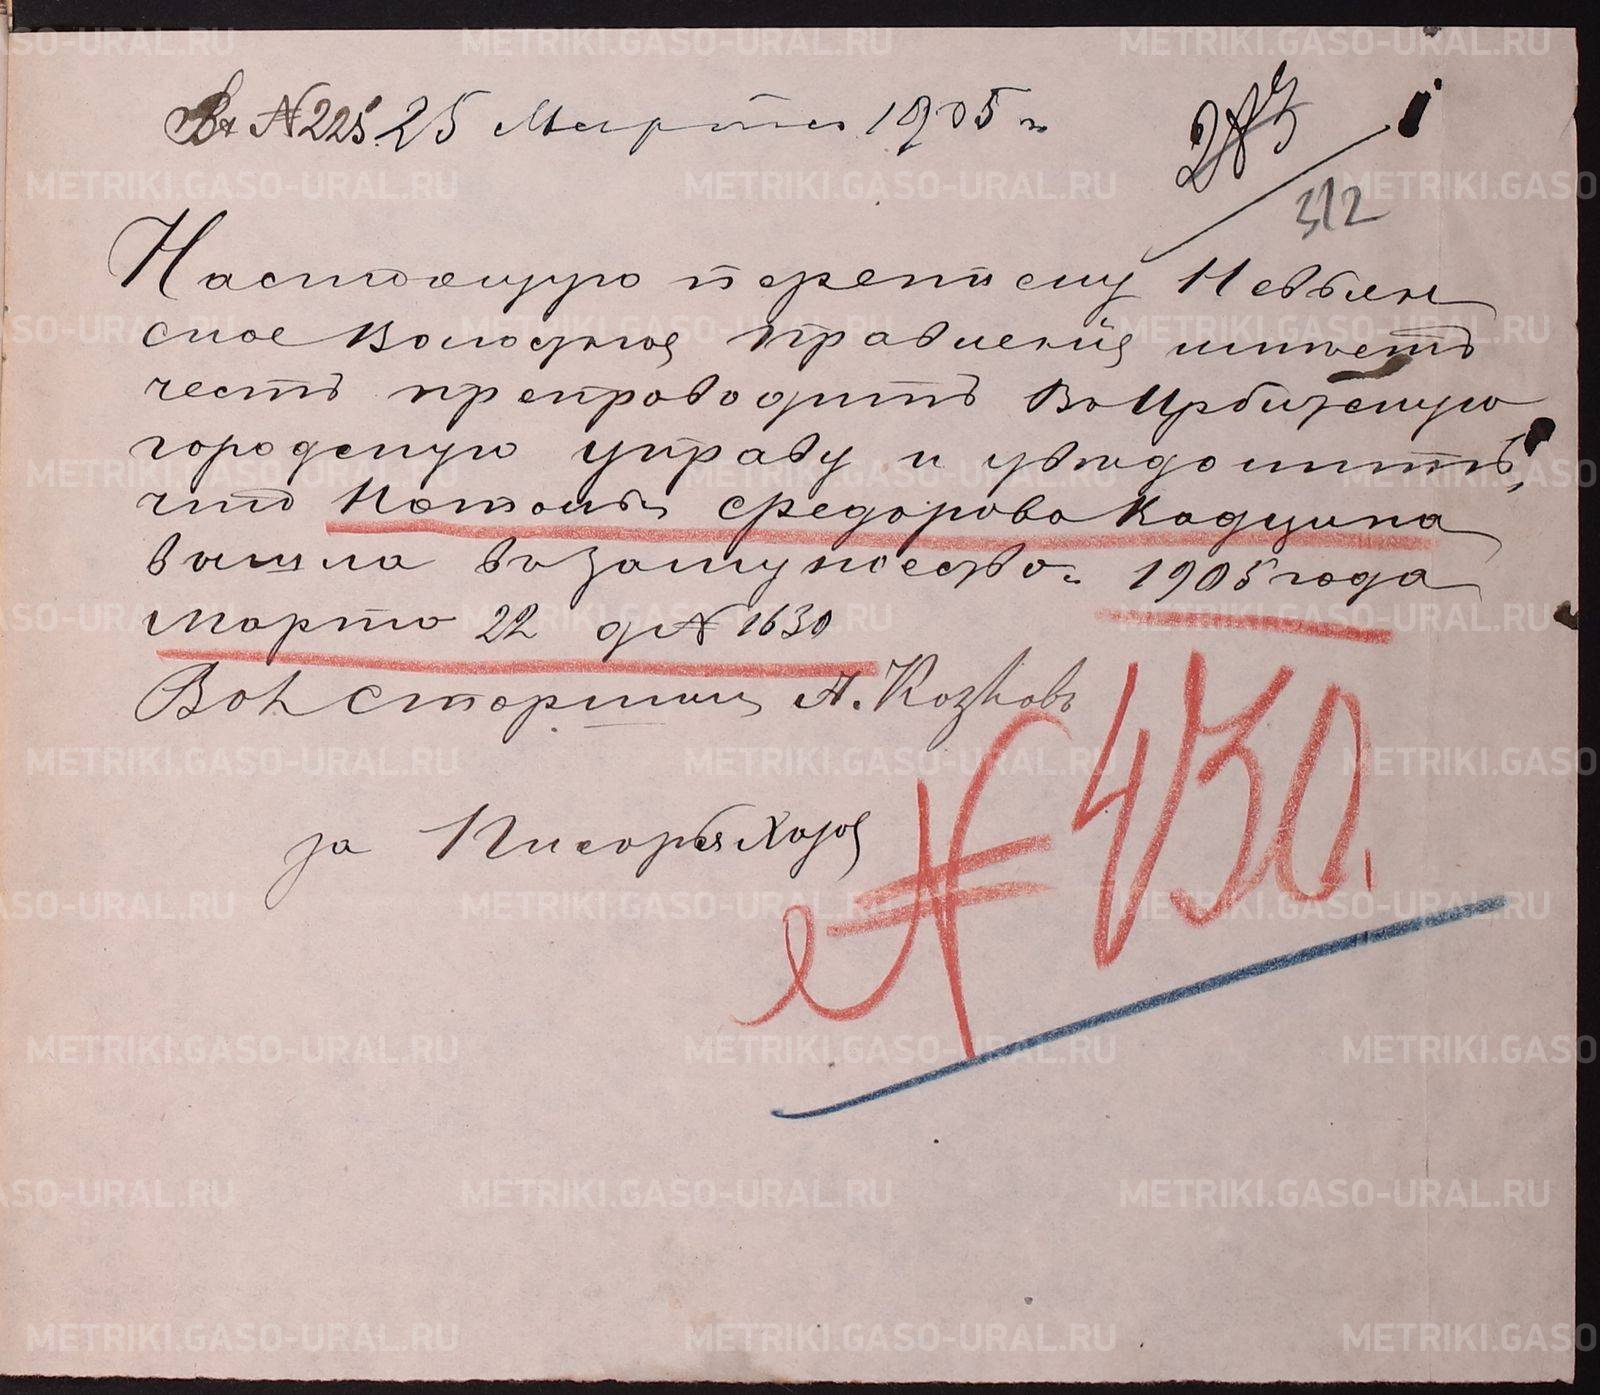 Вх №225 25 Марта 1905 г.
283
312
Настоящую переписку Невьян
ское Волосное Правление имѣетъ
честь препроводить Во Ирбитскую
городскую управу и увѣдомить,
что Наталья Федорова Кадцина
вышла взамужество. 1905 года
Марта 22 д № 1630
Вол Старшина А. Козловъ
за Писаря
№ 430.